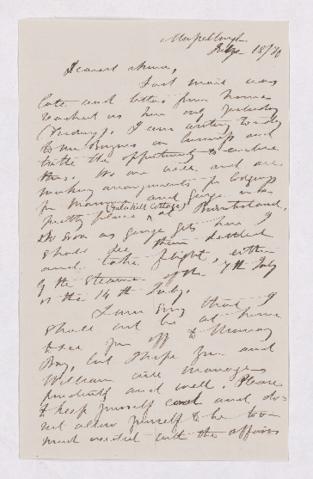 June 18/70
Dearest
Last mail was
late and letters from home
reached us here only yesterday
(Friday). I am writing today
to on business and
take the opportunity to enclose
this. We are well and are
making arrangements for lodgings
for Mamma and George in a
pretty place (Cottage) at
As soon as George gets here I
shall see them settled
and take flight, either
by the Steamer of the 7th July
or the 14th July.
I am sorry that I
shall not be at home
to see you off to Murray
Bay, but I hope you and
William will manage
prudently and well. Please
to keep yourself cool and do
not allow yourself to be too
much worried with the affairs